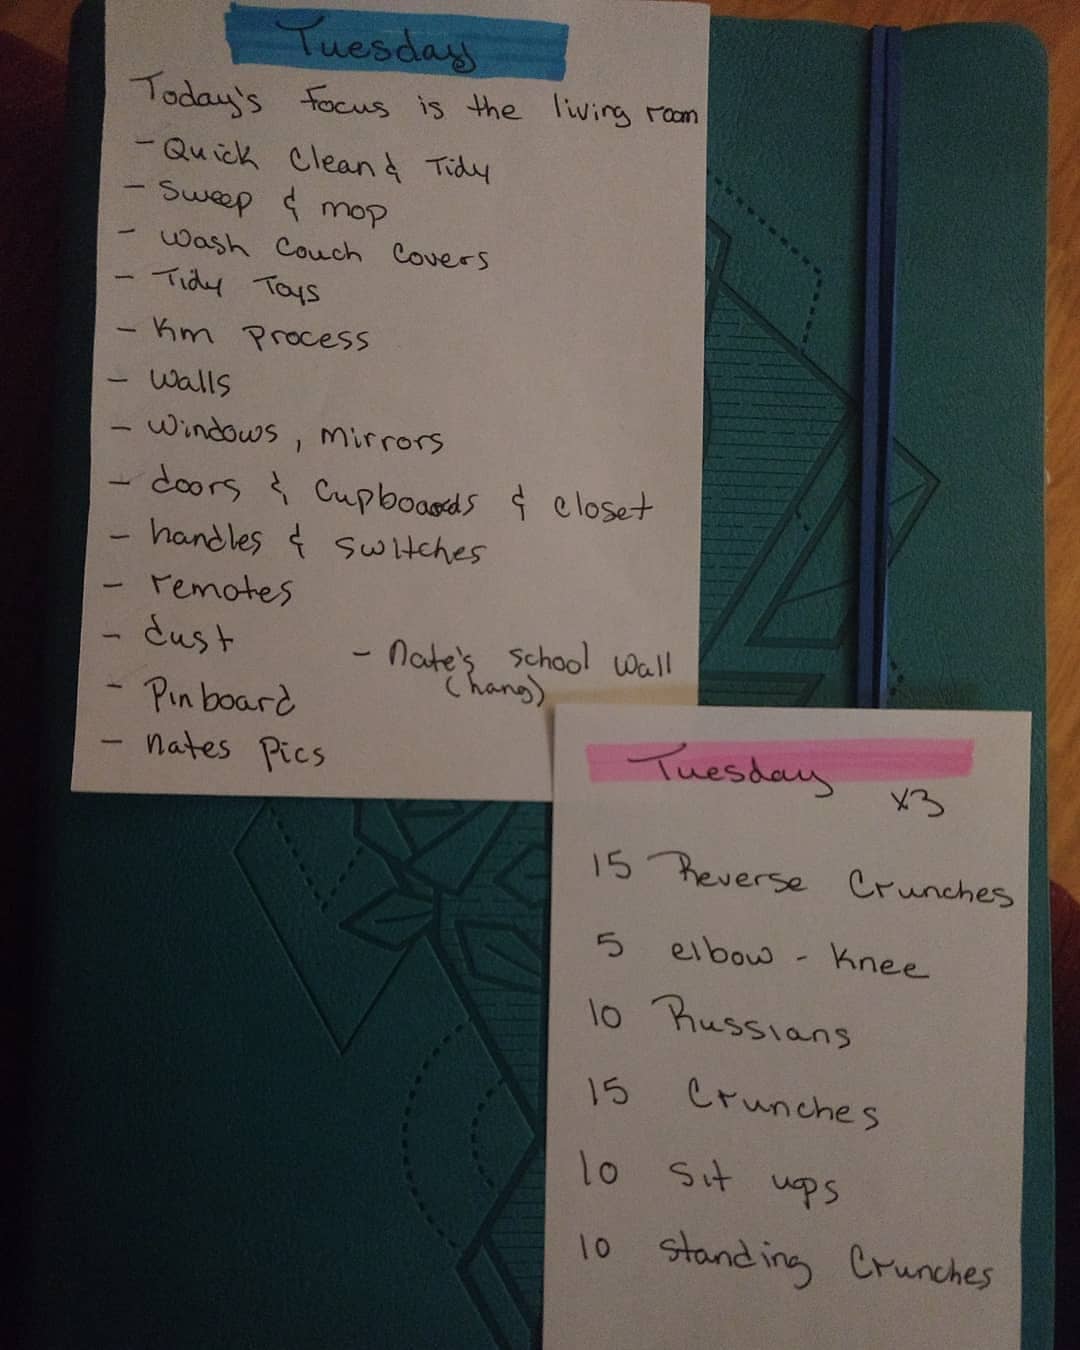 Tuesday
Today's focus is the living room
- Quick Clean & Tidy
- Sweep & mop
- Wash Couch Covers
- Tidy Toys
- Km Process
- Walls
- Windows, Mirrors
- doors & Cupboards & closet
- handles & switches
- remotes
- dust
- Nate's school wall
(hang)
- Pin board
- nates pics
Tuesday
x3
15 Reverse Crunches
5 elbow - knee
10 Russians
15 Crunches
10 Sit ups
10 Standing Crunches